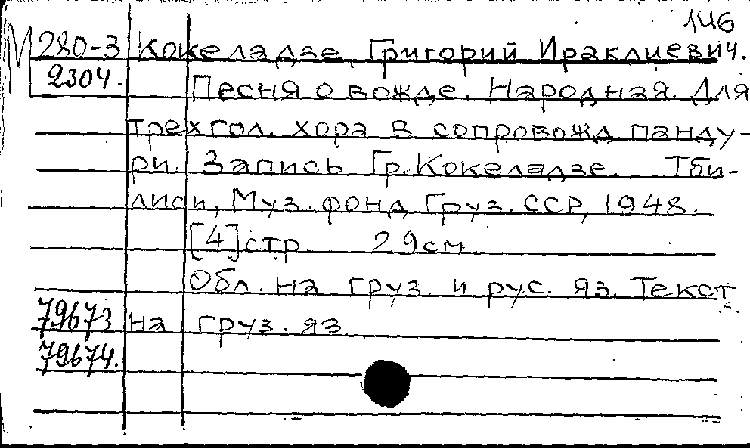 146
М280-3 Кокеладзе, Григорий Ираклиевич.
2304. Песня о вожде. Народная. Для
трехгол. хора в сопровожд. панду-
ри. Запись Гр. Кокеладзе. Тби-
лиси, Муз. фонд Груз. ССР, 1948.
[4] стр. 29 см.
Обл. на груз. и рус. яз. Текст
79673 на груз. яз.
79674.